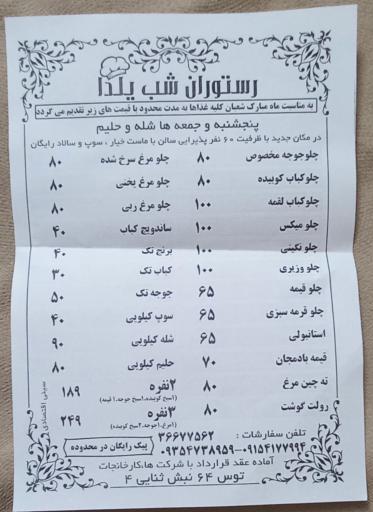 رستوران شب یلدا
به مناسبت ماه مبارک شعبان کلیه غذاها به مدت محدود با قیمت های زیر تقدیم می گردد
پنجشنبه و جمعه ها شله و حلیم
در مکان جدید با ظرفیت ۶۰ نفر پذیرایی سالن با ماست خیار ، سوپ و سالاد رایگان
چلو جوجه مخصوص ۸۰ چلو مرغ سرخ شده ۸۰
چلو کباب کوبیده ۸۰ چلو مرغ یخنی ۸۰
چلو کباب لقمه ۱۰۰ چلو مرغ ربی ۸۰
چلو میکس ۱۰۰ ساندویچ کباب ۴۰
چلو نگینی ۱۰۰ برنج تک ۴۰
چلو وزیری ۱۰۰ کباب تک ۳۰
چلو قیمه ۶۵ جوجه تک ۵۰
چلو قرمه سبزی ۶۵ سوپ کیلویی ۴۰
استانبولی ۶۵ شله کیلویی ۹۰
قیمه بادمجان ۷۰ حلیم کیلویی ۸۰
ته چین مرغ ۸۰ ۲نفره ۱۸۹
(۱سیخ کوبیده،۱سیخ جوجه،۱ قیمه)
رولت گوشت ۸۰ ۳نفره ۲۴۹
(۱مرغ،۱جوجه،۲سیخ کوبیده)
سینی اقتصادی
تلفن سفارشات : ۳۶۶۷۷۵۶۲
۰۹۱۵۴۱۷۷۹۹۴-۰۹۳۵۴۷۳۸۹۵۹ پیک رایگان در محدوده
آماده عقد قرارداد با شرکت ها،کارخانجات
توس ۶۴ نبش ثنایی ۴